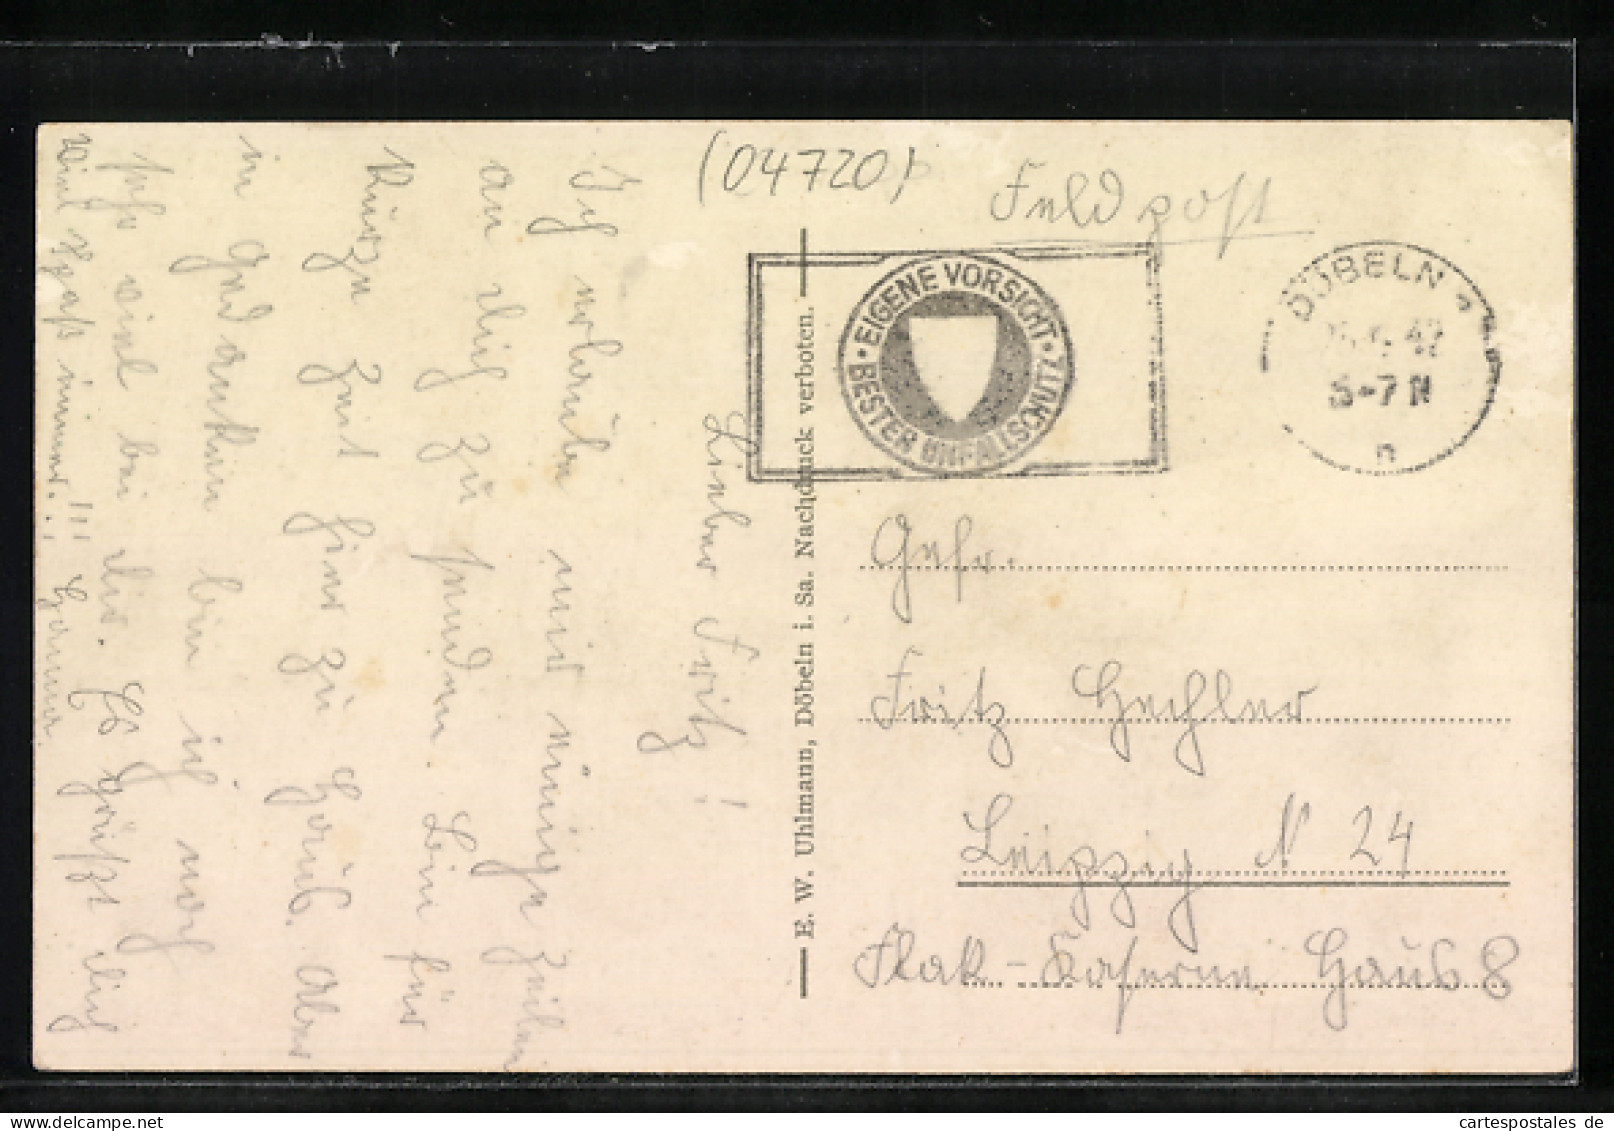 (04720)
Feldpost
EIGENE VORSICHT · BESTER UNFALLSCHUTZ ·
DÖBELN
42
-7 N
Gefr.
Fritz Hechler
Leipzig N 24
Flak-Kaserne Haus 8
E. W. Uhlmann, Döbeln i. Sa. Nachdruck verboten.
Lieber Fritz!
Ich erlaube mir einige Zeilen
an dich zu senden. Bin für
kurze Zeit hier zu Haus. Aber
in gedanken bin ich noch
sehr viel bei dir. Es grüßt dich
viel Spaß immer.!!!